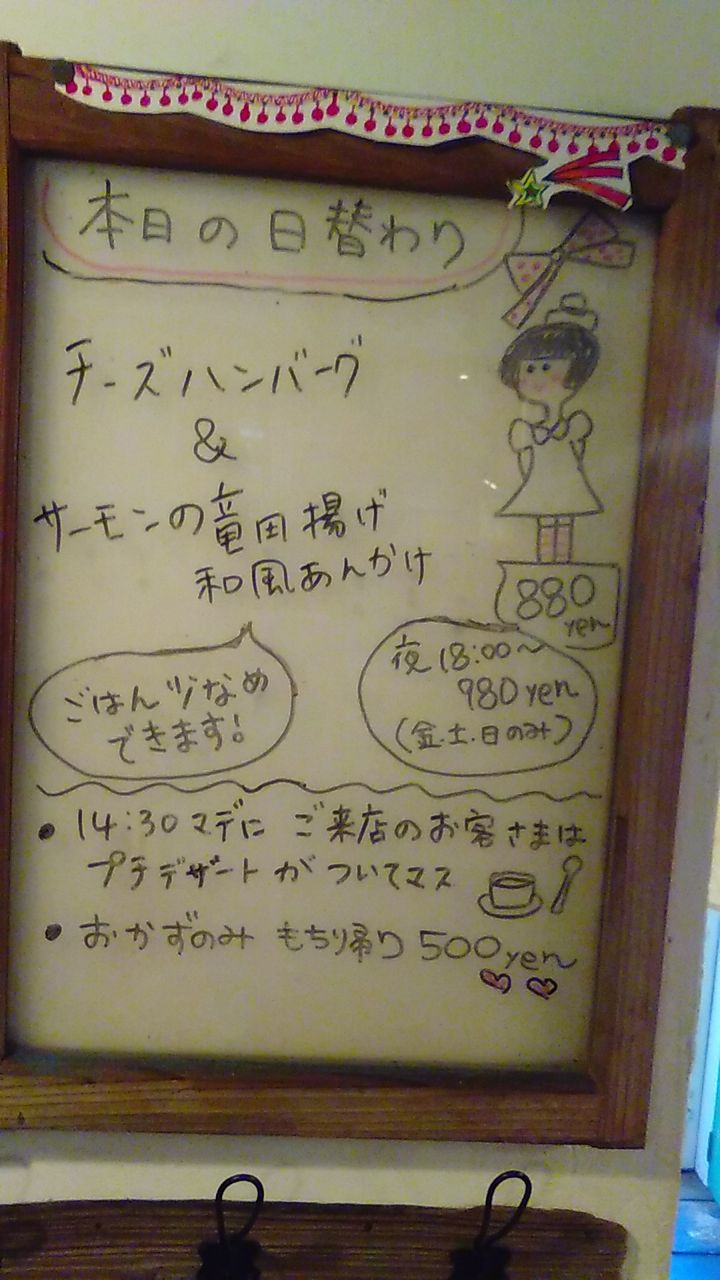 本日の日替わり
チーズハンバーグ
&
サーモンの竜田揚げ
和風あんかけ
880
yen
ごはん少なめ
できます!
夜18:00〜
980yen
(金.土.日のみ)
• 14:30マデに ご来店のお客さまは
プチデザートがついてマス
• おかずのみ もち帰り 500yen